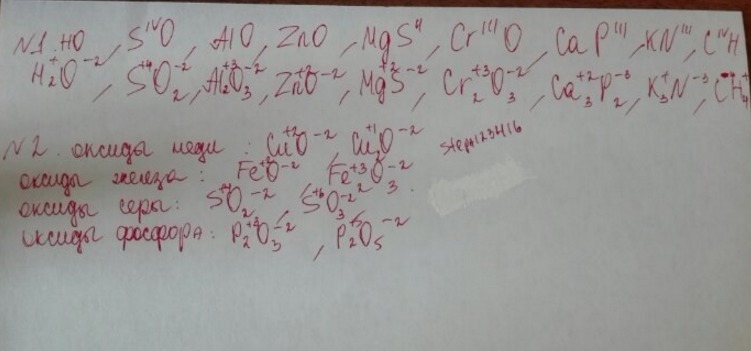 N1. HO, SᴵⱽO, AlO, ZnO, MgSᴵᴵ, Crᴵᴵᴵ O, Ca Pᴵᴵᴵ, KNᴵᴵᴵ, CᴵⱽH
H₂⁺O⁻², S⁺⁴O₂⁻², Al₂⁺³O₃⁻², Zn⁺²O⁻², Mg⁺²S⁻², Cr₂⁺³O₃⁻², Ca₃⁺²P₂⁻³, K₃⁺N⁻³, CH₄
N2. оксиды меди: Cu⁺²O⁻², Cu₂⁺¹O⁻² step123416
оксиды железа: Fe⁺²O⁻², Fe₂⁺³O₃⁻²
оксиды серы: S⁺⁴O₂⁻², S⁺⁶O₃⁻².
оксиды фосфора: P₂⁺³O₃⁻², P₂⁺⁵O₅⁻²